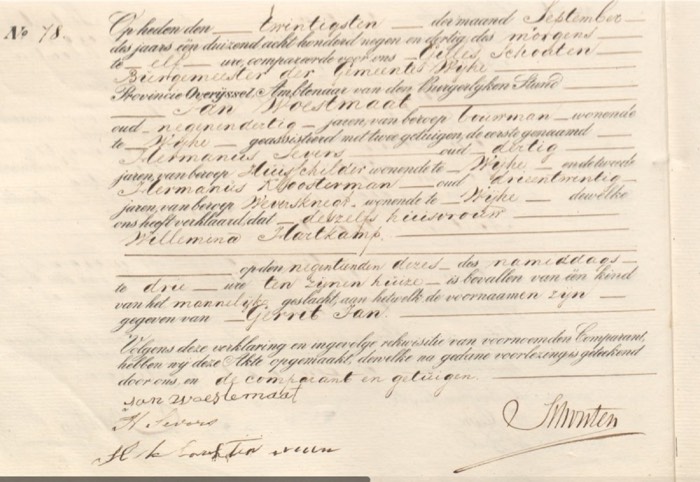 No 78.
Op heden den twintigsten der maand September
des jaars één duizend acht honderd negen en dertig, des morgens
te elf ure, compareerde voor ons Gilles Schouten
Burgemeester der Gemeente Wyhe
Provincie Overijssel, Ambtenaar van den Burgerlyken Stand
Jan Woestmaat
oud negenendertig jaren, van beroep bouwman wonende
te Wyhe geassisteerd met twee getuigen, de eerste genaamd
Hermanus Severs oud dertig
jaren, van beroep Huisschilder wonende te Wyhe en de tweede
Hermanus Kloosterman oud drieentwentig
jaren, van beroep Weversknegt wonende te Wyhe dewelke
ons heeft verklaard, dat deszelfs huisvrouw
Willemina Hartkamp.
op den negentienden dezes des nameddags
te drie ure ten zijnen huize is bevallen van één kind
van het mannelijk geslacht, aan hetwelk de voornaamen zyn
gegeven van Gerrit Jan.
Volgens deze verklaring en ingevolge rekwisitie van voornoemden Comparant,
hebben wy deze Akte opgemaakt, dewelke na gedane voorlezing is geteekend
door ons, en de comparant en getuigen.
Jan Woestemaat
H Severs
Schouten
H